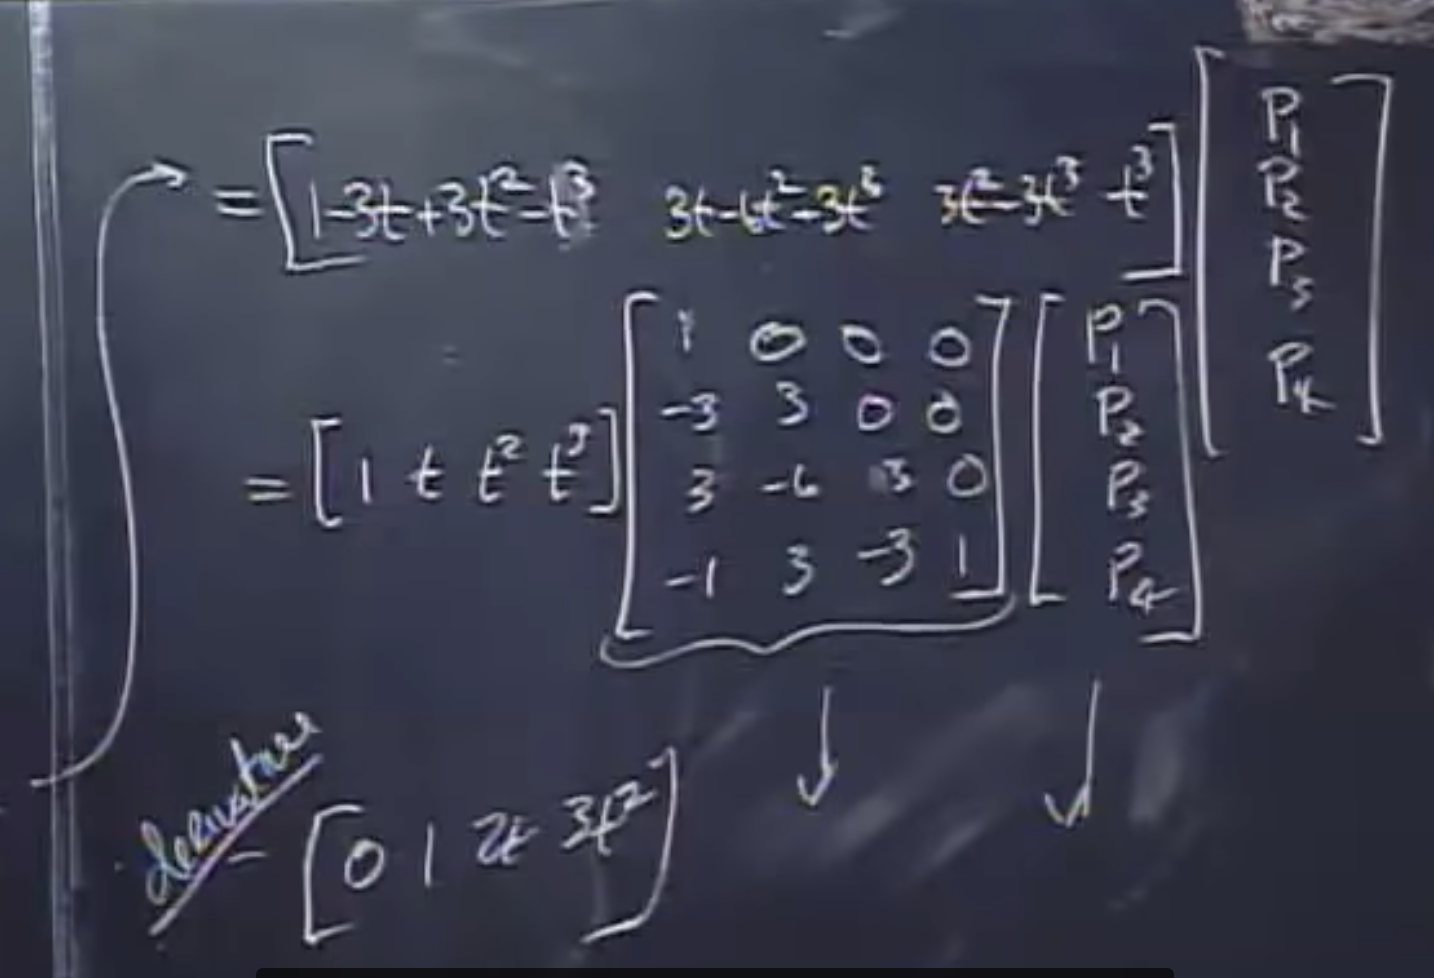 = [1-3t+3t²-t³ 3t-6t²-3t³ 3t²-3t³ t³] [P₁ P₂ P₃ P₄]
= [1 t t² t³] [1 0 0 0
-3 3 0 0
3 -6 3 0
-1 3 -3 1] [P₁ P₂ P₃ P₄]
derivative - [0 1 2t 3t²]